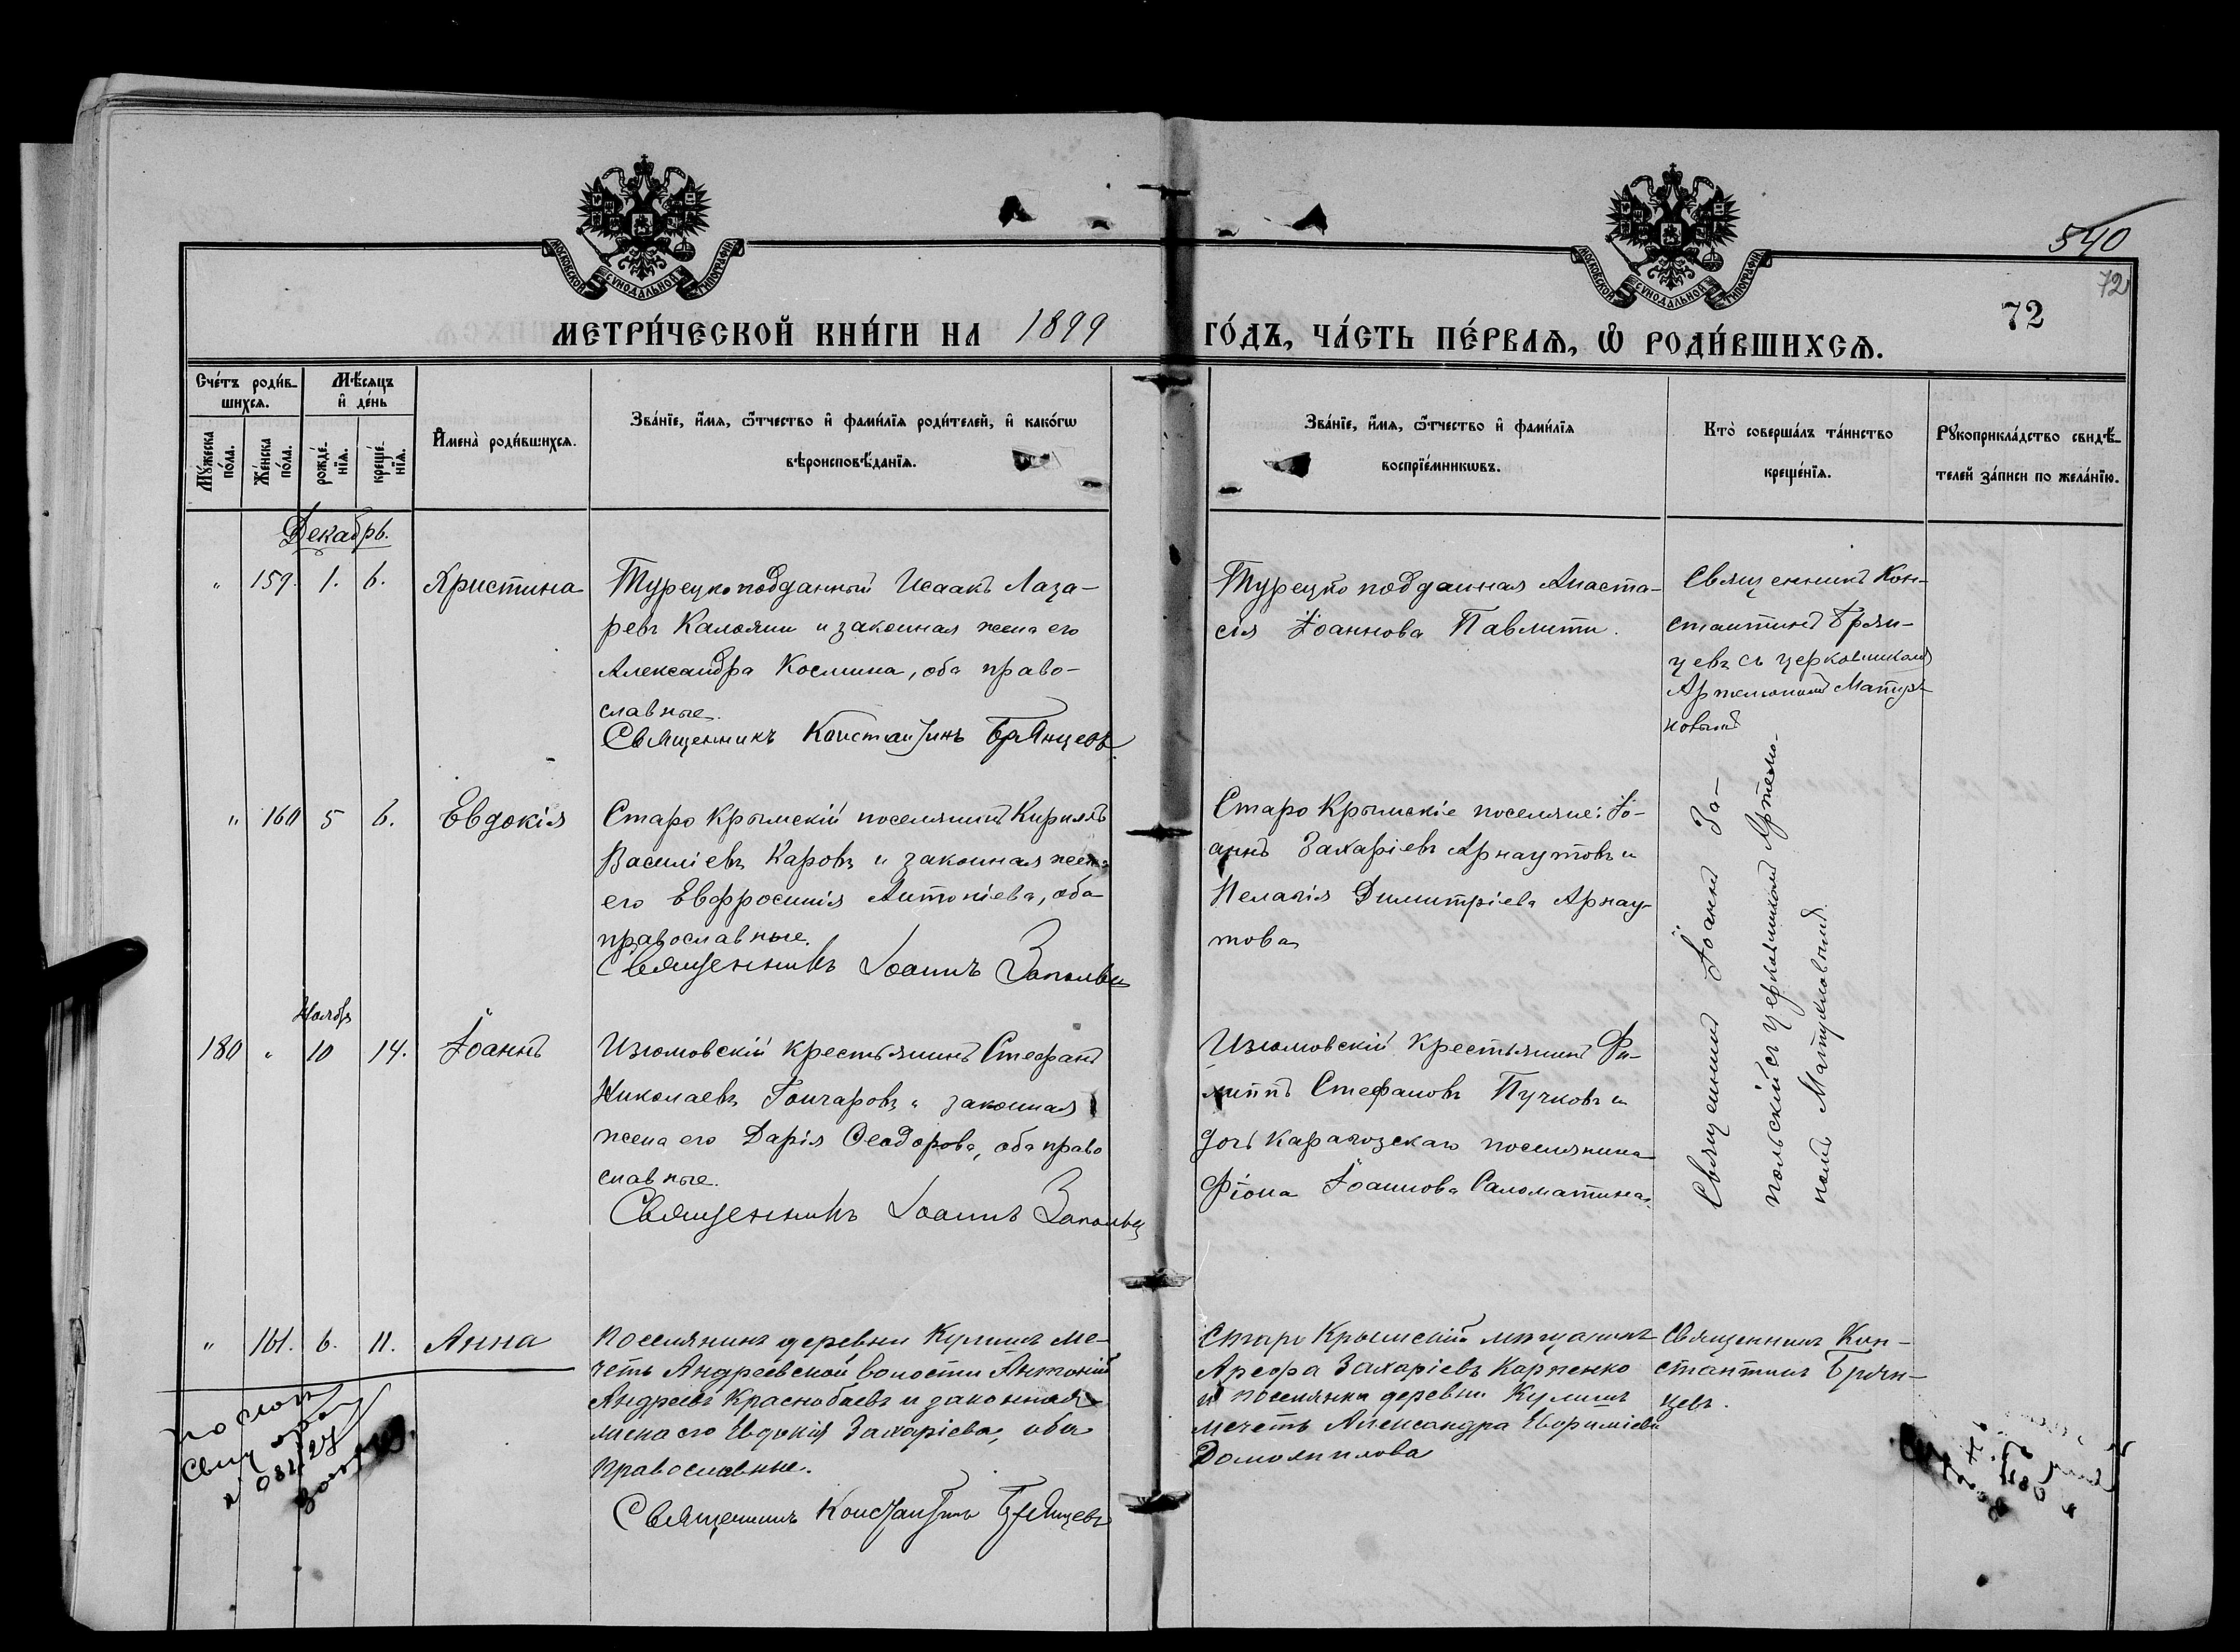 МОСКОВСКОЙ СУНОДАЛЬНОЙ ТИПОГРАФІИ
МОСКОВСКОЙ СУНОДАЛЬНОЙ ТИПОГРАФІИ
540
72
72
МЕТРИ́ЧЕСКОЙ КНИ́ГИ НА 1899 ГО́ДЪ, ЧА́СТЬ ПЕ́РВАѦ, Ѡ РОДИ́ВШИХСѦ.
Сче́тъ роди́в-
шихсѧ.
Мѣ́сѧцъ
и де́нь
Мꙋ́жеска
по́ла.
Же́нска
по́ла.
рожде́-
нїѧ.
креще́-
нїѧ.
И҆мена̀ роди́вшихсѧ.
Зва́нїе, и҆́мѧ, ѻ҆́тчество и҆ фами́лїѧ роди́телей, и҆ како́гѡ
вѣроисповѣ́данїѧ.
Зва́нїе, и҆́мѧ, ѻ҆́тчество и҆ фами́лїѧ
воспрїе́мникѡвъ.
Кто̀ соверша́лъ та́инство
креще́нїѧ.
Рꙋкоприкла́дство свидѣ́-
телей за́писи по жела́нїю.
Декабрь.
" 159. 1. 6. Христина
Турецко подданный Исаакъ Лаза-
ревъ Калояни и законная жена его
Александра Космина, оба право-
славные.
Священникъ Константинъ Брянцевъ
Турецко подданная Анаста-
сія Іоаннова Павлити.
Священникъ Кон-
стантинъ Брян-
цевъ съ церковникомъ
Матух-
новымъ
" 160 5 6. Евдокія
Старо Крымскій поселянинъ Кириллъ
Василіевъ Каровъ и законная жена
его Евфросинія Антоніева, оба
православные.
Священникъ Іоаннъ
Старо Крымскіе поселяне: Іо-
аннъ Захаріевъ Арнаутовъ и
Пелагія Димитріева Арнау-
това
Священникъ Іоаннъ За-
польскій съ церковникомъ
Ноябрь
180 " 10 14. Іоаннъ
Изюмовскій крестьянинъ Стефанъ
Николаевъ Гончаровъ и законная
жена его Дарія Ѳеодорова, оба право
славные.
Священникъ Іоаннъ
Изюмовскій крестьянинъ Фи-
липпъ Стефановъ Пучковъ и
дочь Карагозскаго поселянина
Фіона Іоаннова Саломатина.
" 161. 6. 11. Анна
Поселянинъ деревни Кулишъ Ме-
четь Андреевской волости Антоній
Андреевъ Краснобаевъ и законная
жена его Евдокія Захаріева, оба
Православные.
Священникъ Константинъ Брянцевъ
Старо Крымскій мещанинъ
Арефа Захаріевъ Карпенко
и поселянка деревни Кулишъ
мечеть Александра Евфиміева
Священникъ Кон-
стантинъ Брян-
цевъ.